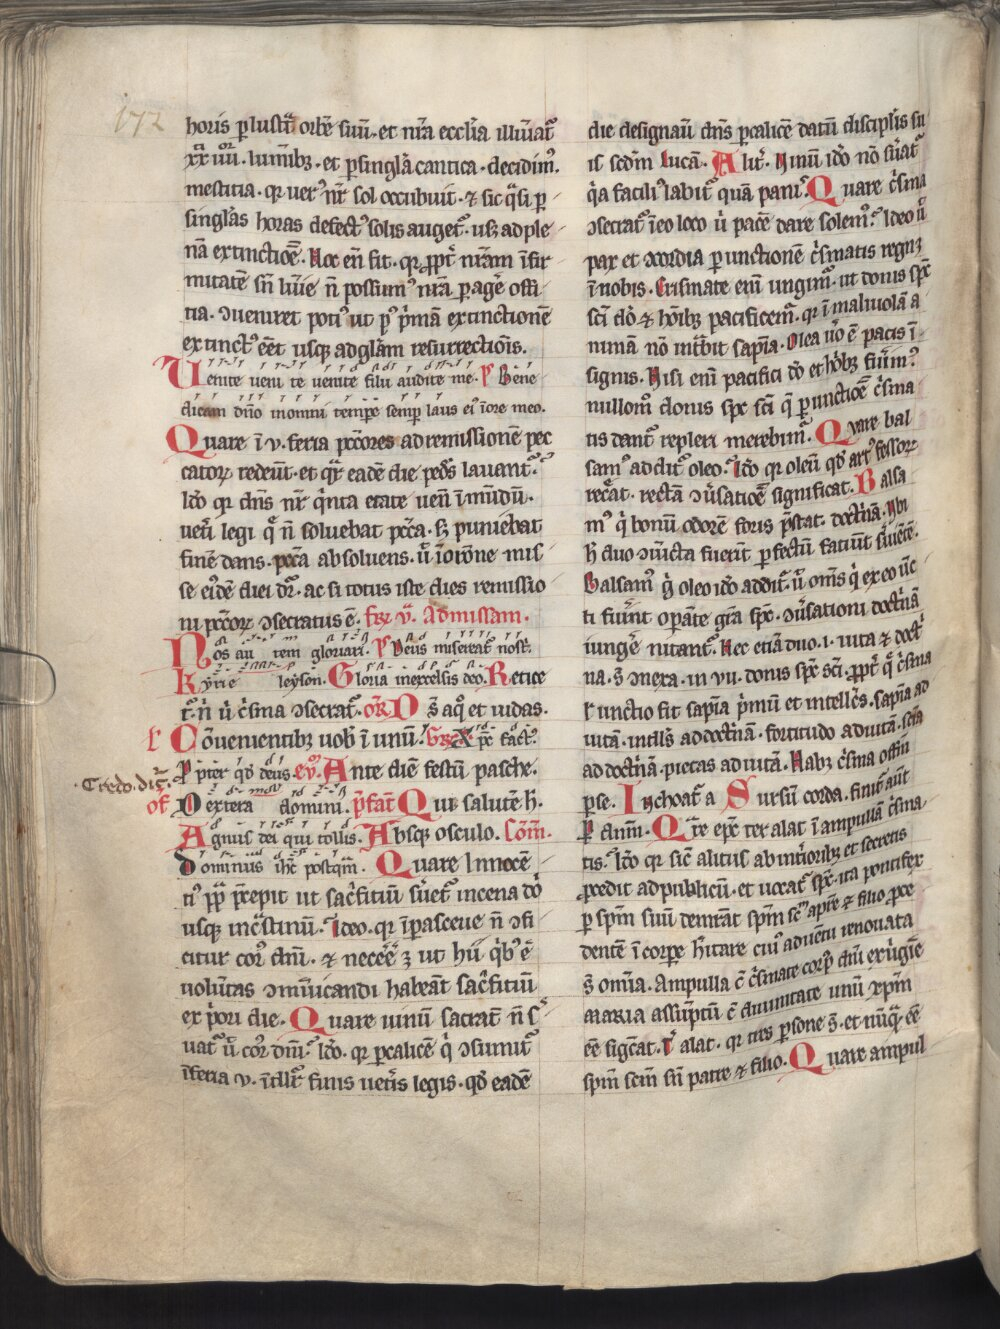 172
horis ꝑlustᷓt orbē suū. et nr̄a ecclīa illuīat᷑
xx̄ iiii. lumīb⁊. et ꝑ singl̄a cantica. decidim᷒.
mestitia. qr uer᷒ nr̄ sol occubuit. ⁊ sic qᷓsi ꝑ
singl̄as horas defect᷒ solis auget᷑. usq⁊ ad ple
nā extinctiōe. Hoc eni fit. qr ꝓpt̄ nr̄am īfir
mitatē sn̄ lūīe n̄ possum᷒ nr̄a ꝑagē offi
tia. ꝯueniret poti᷒ ut ꝑ᷒ pͥmā extinctionē
extinct᷒ eēt usq⁊ ad glām resurrectiōis.
Uenite ueni te uenite filii audite me. P̄ Bene
dicam dn̄o inomni tempe semꝑ laus ei᷒ iore meo.
Quare ī v. feria pctōres ad remissionē pec
catoꝝ redeūt. et qr̄ eadē die pedes lauant᷑.
Ido qr dn̄s nr̄ qͥnta etate uenī ī mūdū.
uetī legi qͣ n̄ soluebat pccā. s⁊ puniebat
finē dans. pccā absoluens. ū īoiōne mis
se ei᷒dē diei dr̄. ac si totus iste dies remissio
ni pctōꝝ ꝯsecratus ē. fīa v͛. Ad missam.
Nos au tem gloriari. P̄ Deus misereat᷑ nostͥ.
Kyrie leyson. Gloria inexcelsis deo. Retice
t᷑. n̄ ū cͥsma ꝯsecrat᷑. or̄ D s̄ aqͦ et iudas.
ł Cōuenientib⁊ uob̄ ī unū. Gr̄ Xp̄c fact᷒.
P̄ Ppter qd̄ deus. eū. Ante diē festū pasche.
Credo. dic̄.
of Dextera domini. p̄fat̄ Qui salutē h̄.
Agnus dei qui tollis. Absq⁊ osculo. Cōm̄.
Dominus ih̄c postqͣm. Quare Innocē
ti᷒ pp̄ p̄cepit ut sacͥfitiū s̄uet᷑ in cena dō
usq⁊ incͣstinū. Ideo. qr ī pasceue n̄ ꝯfi
citur cor᷒ dn̄i. ⁊ neceē ē ut hii qͥb᷒ ē
volūtas ꝯmūicandi habeāt sacͥfitiū
ex pͥori die. Quare uinū sacrat̄ n̄ s̄
uat᷑ ū cor᷒ dn̄i. Ido. qr ꝑ calicē qͥ ꝯsumit᷑
īferia v. ītllr̄ finis uetīs legis. qd̄ eadē
die designaū dn̄s ꝑ calicē datū disciplis su
is sedm̄ lucā. Alit̄. Uinū idō nō s̄uat᷑
qͥa facili᷒ labit᷑ quā panis. Quare cͥsma
ꝯsecrat᷑ ī eo loco ū pacē dare solem᷒. Ideo n̄
pax et ꝯcordia ꝑ unctionē cͥsmatis regn⁊
ī nobis. Crismate enī ungim᷑. ut donis spc̄
scī dō ⁊ hōib⁊ pacificem᷑. qr ī maliuolā a
nimā nō intͣbit sapīa. Olea ūo ē pacis ī
signis. Nisi enī pacifici dō et hōib⁊ fuīm᷒
nullom̄ donis spc̄ scī q̄ ꝑ unctioē cͥsma
tis dant᷑ repleri merebim᷑. Quare bal
sam᷒ addit᷑ oleo. Ido qr oleū qd̄ art᷒ fessoꝝ
recͣat. rectā ꝯūsatioē significat. Balsa
m᷒ qͥ bonū odorē foris p̄stat. doctͥnā. Ubi
h̄ duo ꝯiūcta fuerīt ꝑfectū faciūt s̄uientē.
Balsam᷒ gͦ oleo idō addit᷑. ū om̄s qͥ ex eo ūc
ti fuīnt oꝑāte gr̄a spc̄. ꝯūsationi doctͥnā
iungē nitant᷑. Hec etiā duo. i. uita ⁊ doctͥ
na. s̄ ꝯnexa. in vii. donis spc̄ scī. ꝓpt̄ qᷓ cͥsma
ł unctio fit sapīa pͥmū et intellēs. sapīa ad
uitā. intlls̄ ad doctͥnā. fortitudo ad uitā. scīa
ad doctͥnā. pietas ad uitā. Hab⁊ cͥsma offm̄
ꝑ se. Inchoat᷑ a Sursū corda. finit᷑ aūt
ꝑ dnm̄. Qͣre epc̄ ter alat ī ampullā cͥsma
tis. Ido qr sic alitus ab intͥorib⁊ et secretis
ꝓcedit ad publicū. et uocat᷑ spc̄. ita pontifex
ꝑ spm̄ suū denūat spm̄ sc̄ a pat̄re ⁊ filio ꝓce
dentē ī corꝑe h̄itare cui᷒ aduētu renouata
s̄ om̄ia. Ampulla c̄ cͥsmate corp᷒ dn̄i ex uͥgīe
maria assūptū c̄ diuinitate unū xp̄m
eē sigcat. Tͥ alat. qr tres ꝑsone s̄. et nūqᷓ eē
spm̄ scm̄ sn̄ patre ⁊ filio. Quare ampul